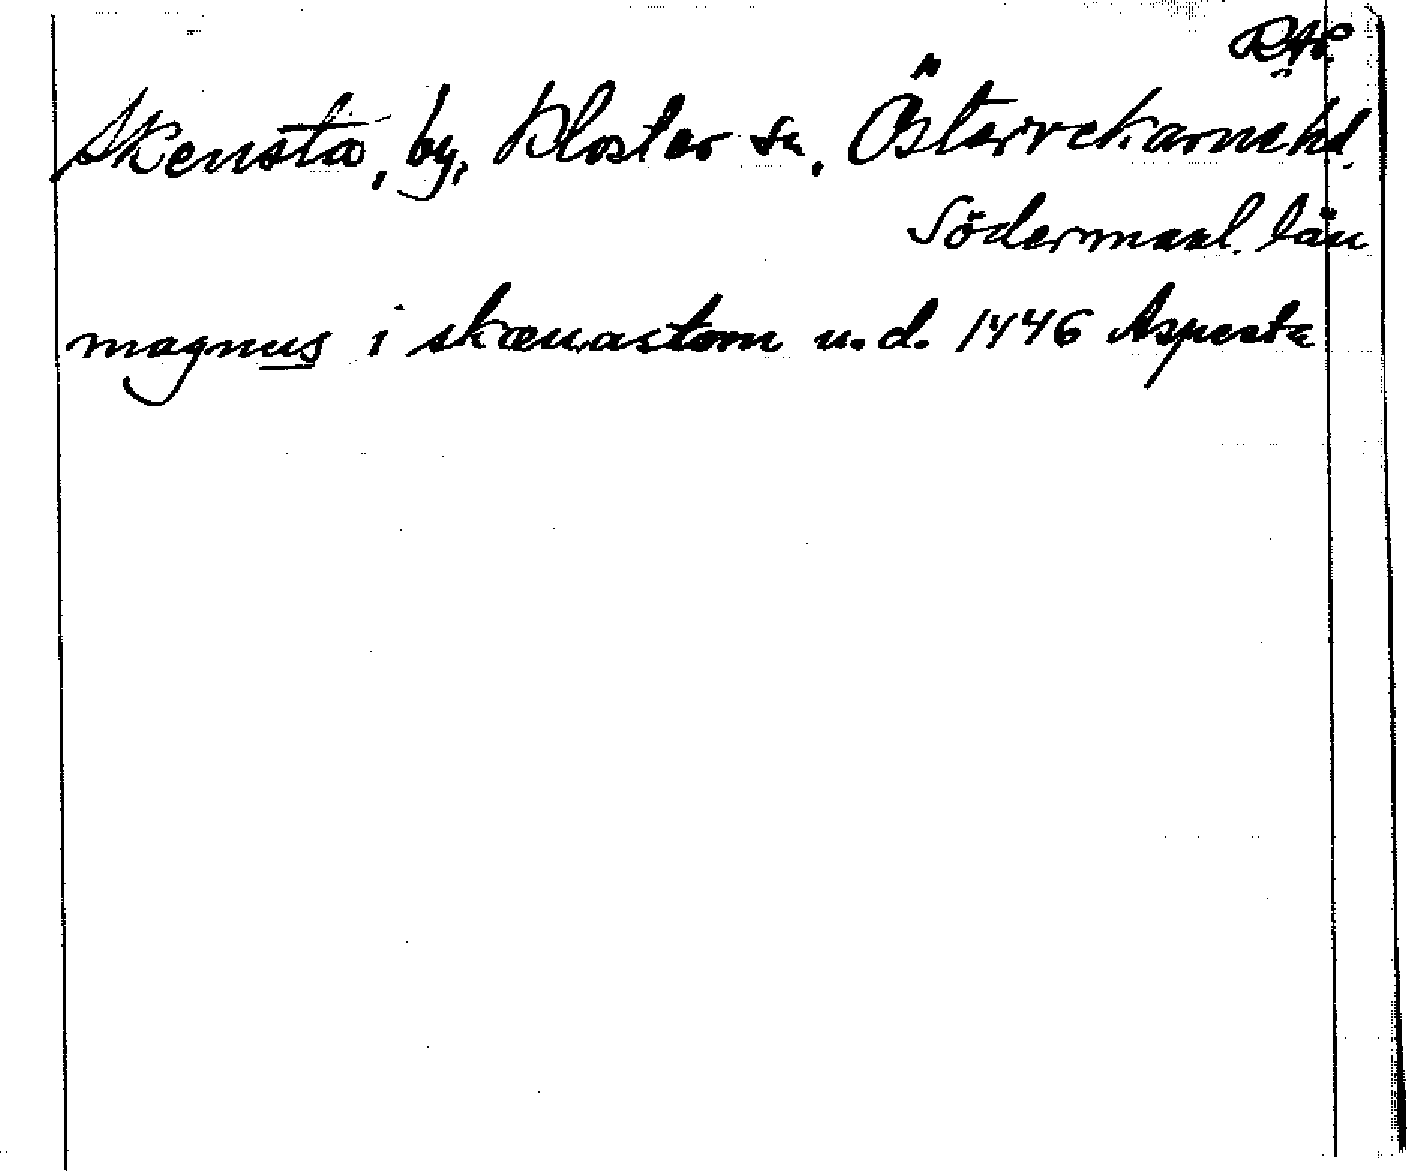 RAP.
Skensta, by, Kloster sn, Österrekarne hd.
Södermanl. län
magnus i skænastom u.d. 1446 Aspesta